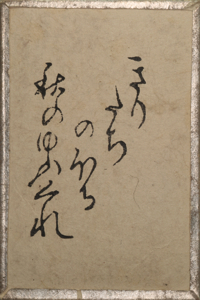 きり
たち
のほる
秋の夕くれ